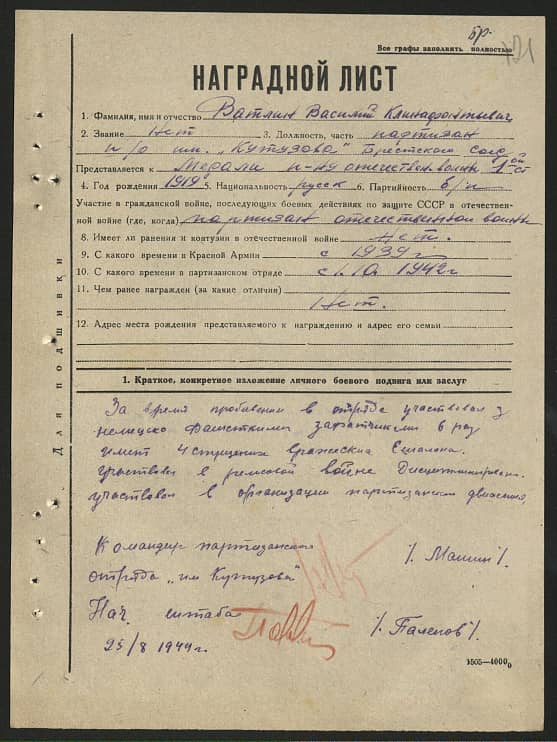 бр.
121
Все графы заполнять полностью
НАГРАДНОЙ ЛИСТ
1. Фамилия, имя и отчество Ватлин Василий
2. Звание Нет 3. Должность, часть партизан
п/о им. "Кутузова" Брестского соед
Представляется к Медали п-ну отечествен. войны 1ой ст
4. Год рождения 1919 5. Национальность русск 6. Партийность б/п
Участие в гражданской войне, последующих боевых действиях по защите СССР в отече-
ственной войне (где, когда) партизан отечественной войны
8. Имеет ли ранения и контузии в отечественной войне нет.
9. С какого времени в Красной Армии с 1939г
10. С какого времени в партизанском отряде с 1.10 1942г
11. Чем ранее награжден (за какие отличия)
Нет.
12. Адрес места рождения представляемого к награждению и адрес его семьи
Для подшивки
1. Краткое, конкретное изложение личного боевого подвига или заслуг
За время пребывания в отряде участвовал з
немецко фашисткими 6 раз
имеет 4 спущенных вражеских Ешалона.
участвовал в рельсовой войне
участвовал в организации партизанским движения
Командир партизанского /. Машин /.
отряда "им Кутузова"
Нач. штаба
25/8 1944г.
1505—4000